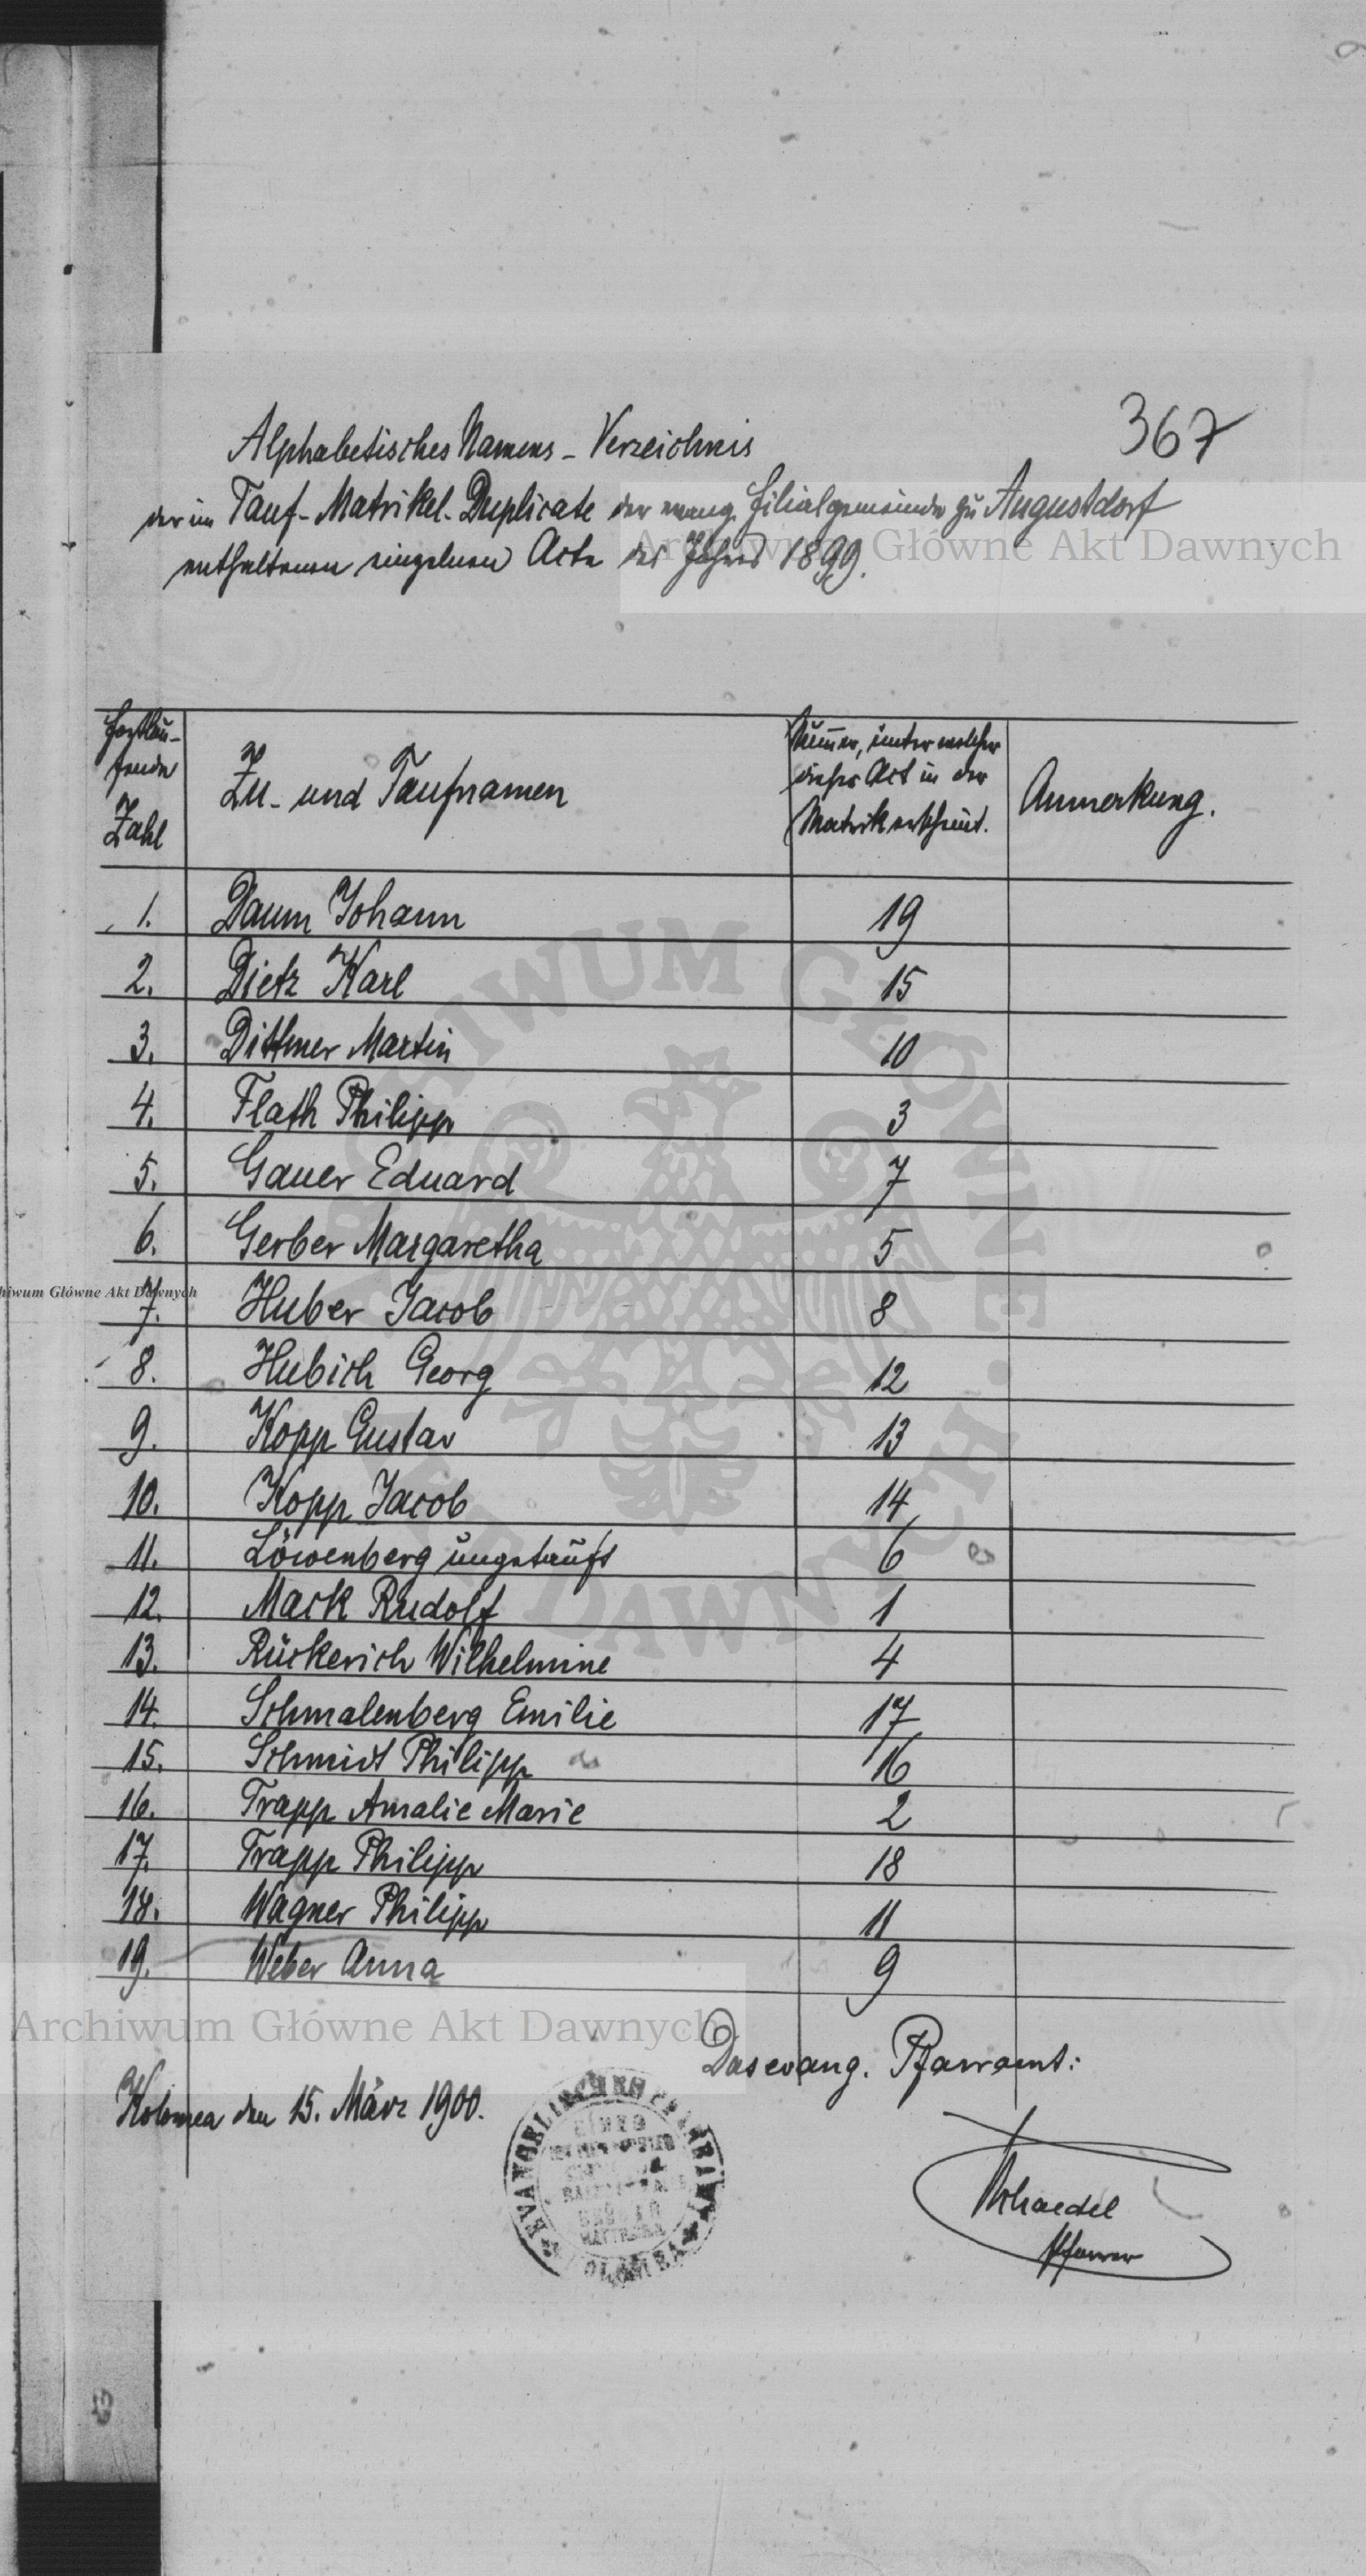 367
Alphabetisches Namens-Verzeichnis
der im Tauf-Matrikel-Duplicate der evang. Filialgemeinde zu Augustdorf
enthaltenen einzelnen Acte des Jahres 1899.
Fortlau-
fende
Zahl
Zu- und Taufnamen
Numer, unter welcher
dieser Act in der
Matrik erscheint.
Anmerkung.
1. Daum Johann 19
2. Dietz Karl 15
3. Dittmer Martin 10
4. Flath Philipp 3
5. Gauer Eduard 7
6. Gerber Margaretha 5
7. Huber Jacob 8
8. Hubich Georg 12
9. Kopp Gustav 13
10. Kopp Jacob 14
11. Löwenberg ungetauft 6
12. Mack Rudolf 1
13. Rückerich Wilhelmine 4
14. Schmalenberg Emilie 17
15. Schmidt Philipp 16
16. Trapp Amalie Marie 2
17. Trapp Philipp 18
18. Wagner Philipp 11
19. Weber Anna 9
Das evang. Pfarramt:
Kolomea den 15. März 1900.
EVANGELISCHES PFARRAMT
KOLOMEA
Pfarrer
Archiwum Główne Akt Dawnych
Archiwum Główne Akt Dawnych
hiwum Główne Akt Dawnych
ARCHIWUM GŁÓWNE AKT DAWNYCH